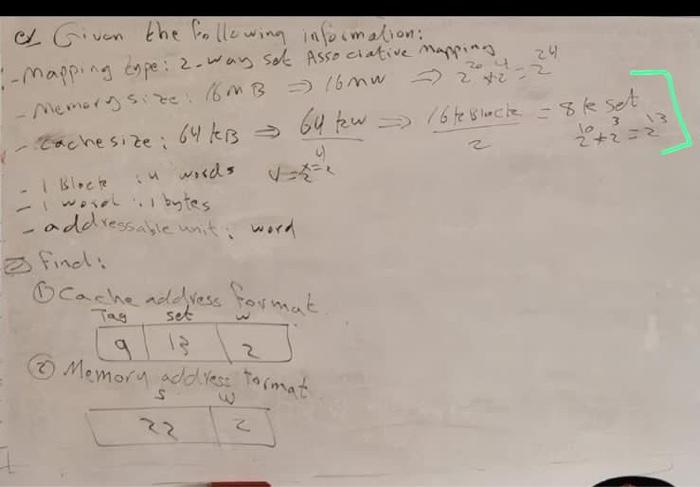 Given the following information:
- Mapping type: 2-way set Associative mapping
- Memory size: 16MB ⇒ 16MW ⇒ 2^20 * 2^4 = 2^24
- cache size: 64 kB ⇒ 64 kw / 4 ⇒ 16k Block / 2 = 8k set
2^10 * 2^3 = 2^13
- 1 Block : 4 words
- 1 word : 1 bytes
- addressable unit: word
Find:
① Cache address format
Tag set w
9 13 2
② Memory address format
S W
22 2